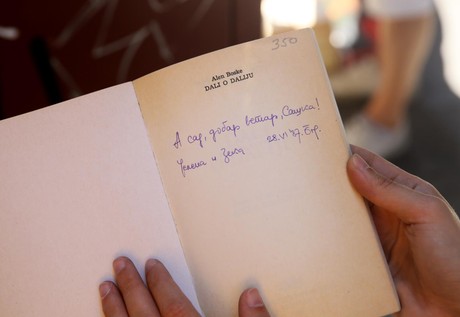 350
Alen Boske
DALI O DALIJU
А сад, добар ветар, Сашка!
Јелена и Зека 28.VI '97. Бгр.